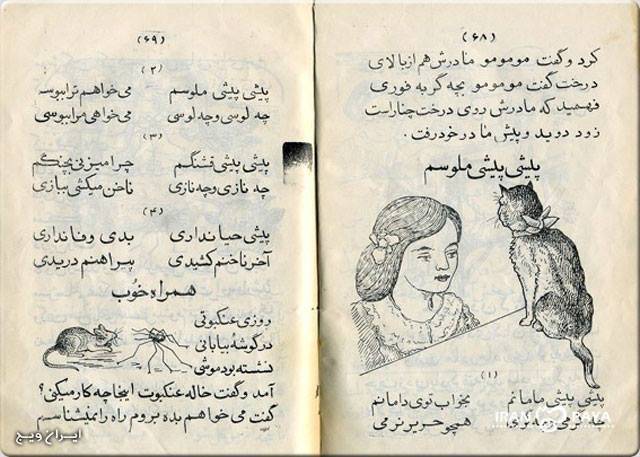 (۶۸)
کرد و گفت مومومو مادرش هم از بالای
درخت گفت مومومو بچه گربه فوری
فهمید که مادرش روی درخت چنار است
زود دوید و پیش مادر خود رفت.
پیشی پیشی ملوسم
(۱)
پیشی پیشی مامانم بخواب توی دامانم
چه نرمی همچو حریر نرمی
IRAN RAYA
(۶۹)
(۲)
پیشی پیشی ملوسم می‌خواهم ترا ببوسم
چه لوسی و چه لوسی می‌خواهی مرا ببوسی
(۳)
پیشی پیشی قشنگم چرا میزنی بچنگم
چه نازی و چه نازی ناخن میکشی ببازی
(۴)
پیشی حیا نداری بدی وفا نداری
آخر ناخنم کشیدی پیراهنم دریدی
همراه خوب
روزی عنکبوتی
در گوشه بیابانی
نشسته بود موشی
آمد و گفت خاله عنکبوت اینجا چه کار میکنی؟
گفت می‌خواهم بده بروم راه را نمیشناسم
ایران ویج